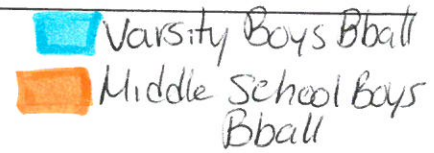 Varsity Boys Bball
Middle School Boys
Bball